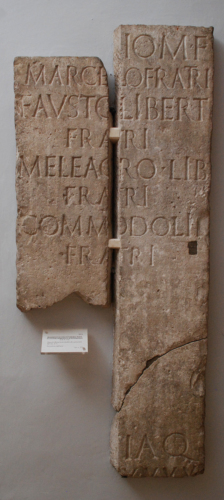 IOM·F
MARCELLOFRATRI
FAVSTO LIBERT
FRATRI
MELEAGRO·LIB
FRATRI
COMMODOLIB
FRATRI
IAQ